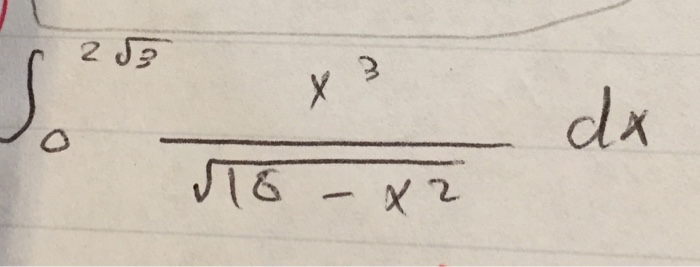 ∫₀^{2√3} x³ / √(16 - x²) dx